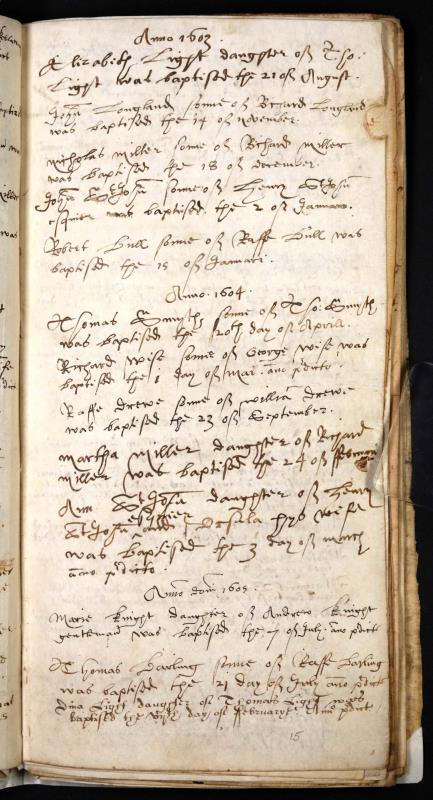 Anno 1603
Elizabeth Light daughter of Tho.
Light was baptised the 21 of August.
John Longland sonne of Richard Longland
was baptised the 14 of november.
nicholas miller sonne of Richard miller
was baptised the 18 of december.
John St John sonne of Henry St John
esquier was baptised the 2 of
Robert Bull sonne of Raffe Bull was
baptised the 15 of Januari.
Anno 1604.
Thomas Smyth sonne of Tho: Smyth
was baptised the 20th day of Aprill.
Richard wise sonne of George wise was
baptised the 1 day of mai ano
Raffe drewe sonne of william drewe
was baptised the 23 of September.
martha miller daughter of Richard
miller was baptised the 24 of
Ann St John daughter of Henry
St John esquier and hys wife
was baptised the 3 day of march
anno
Anno dom 1605.
Marie Knight daughter of Andrew Knight
gentleman was baptised the 7 of July ano
Thomas Barling sonne of Raffe Barling
was baptised the 21 day of July ano
Light daughter of Thomas Light was
baptised the day of February Ano
15